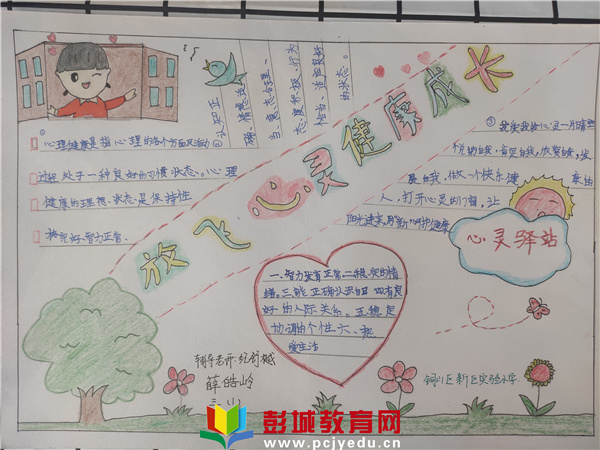 放飞心灵健康成长
①心理健康是指心理的各个方面及活动
过程处于一种良好的习惯状态。心理
健康的理想状态是保持性
格完好、智力正常、
②认知正
确、情感适
当、意志合理、
态度积极、行为
恰当、适应良好
的状态。
③我爱我的心灵
悦纳自我,肯定自我,欣赏自我,发
展自我,做一个快乐健康的
人,打开心灵的门窗,让
阳光进来,用"新"呵护健康
心灵驿站
一、智力发育正常二、稳定的情
绪。三、能正确认识自己四、有良
好的人际关系。五、稳定
协调的个性六、热
爱生活
辅导老师:纪舒械
薛皓岭
三
铜山区新区实验小学
彭城教育网
www.pcjyedu.cn